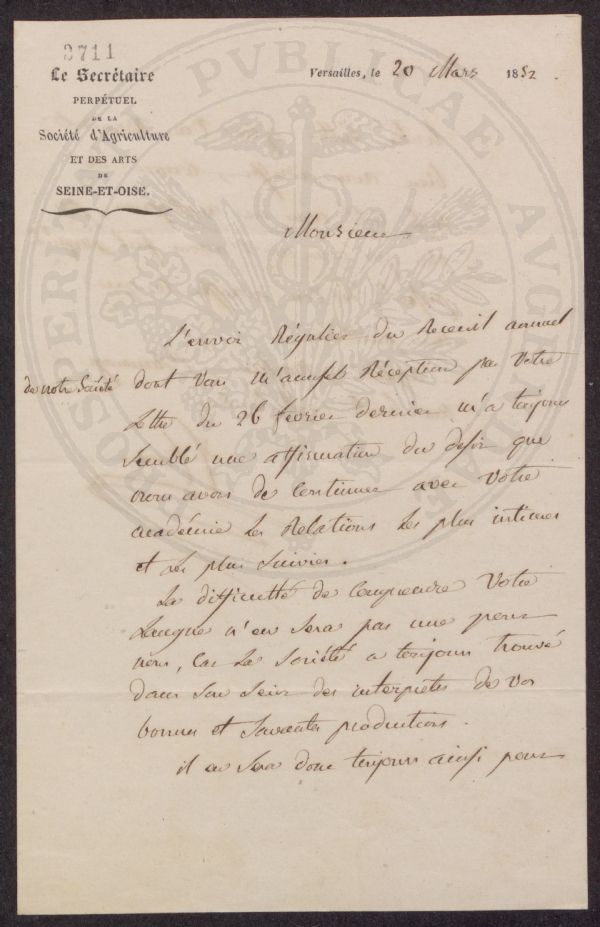 2711
Le Secrétaire
PERPÉTUEL
DE LA
Société d'Agriculture
ET DES ARTS
DE
SEINE-ET-OISE.
Versailles, le 20 Mars 1852
Monsieur
L'envoi Régulier du Recueil annuel
de notre Société dont Vous m'accusez Réception par Votre
Lettre du 26 février dernier m'a toujours
semblé une affirmation du desir que
nous avons de Continuer avec Votre
académie Les Relations Les plus intimes
et Les plus Suivies.
La difficulté de Comprendre Votre
Langue n'en Sera pas une pour
nous, Car La Société a toujours trouvé
dans Son Sein des interprètes de Vos
bonnes et Savantes productions.
il en Sera donc toujours ainsi pour